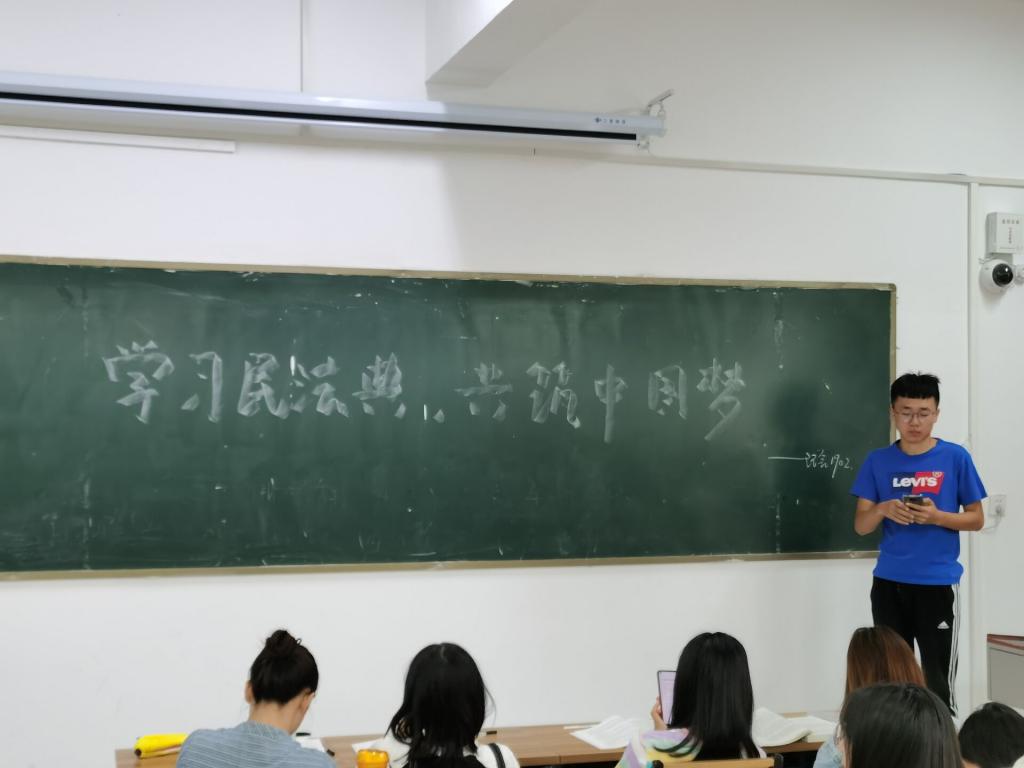 学习民法典，共筑中国梦
——记会1902.
LEVI'S